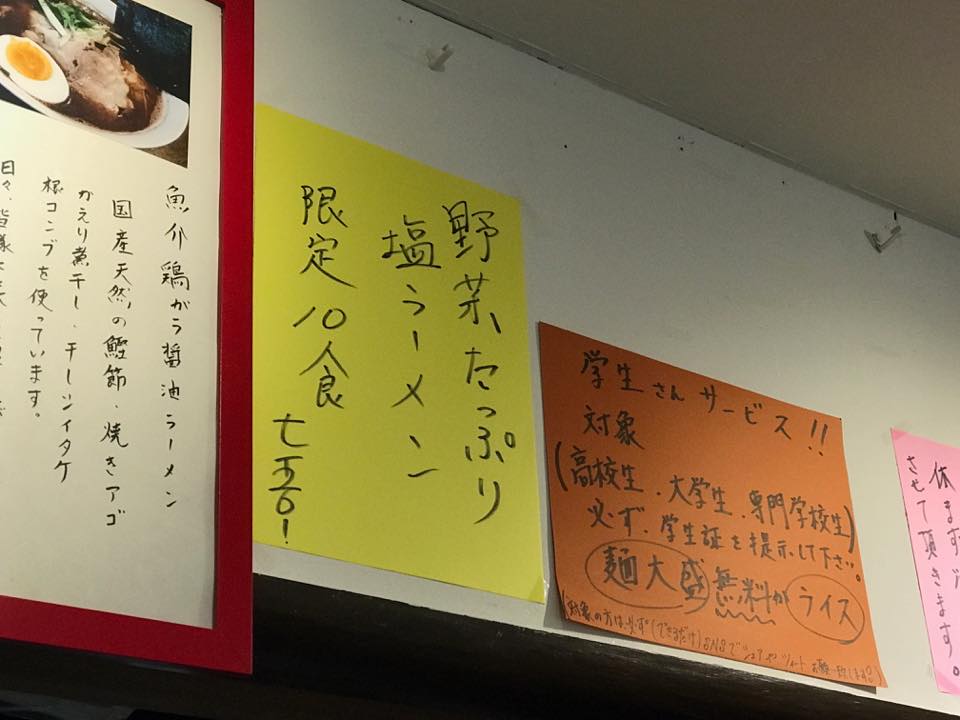 魚介鶏がら醤油ラーメン
国産天然の鰹節、焼きアゴ
がえり煮干し、干しシイタケ
根コンブを使っています。
日々、皆様
野菜たっぷり
塩ラーメン
限定10人食
七五〇!
学生さんサービス!!
対象
(高校生、大学生、専門学校生)
必ず、学生証を提示して下さい。
麺大盛無料かライス
(対象の方は必ず(できるだけ)SNSでシェアやツイートお願い致します!)
休ます
させて頂きます。